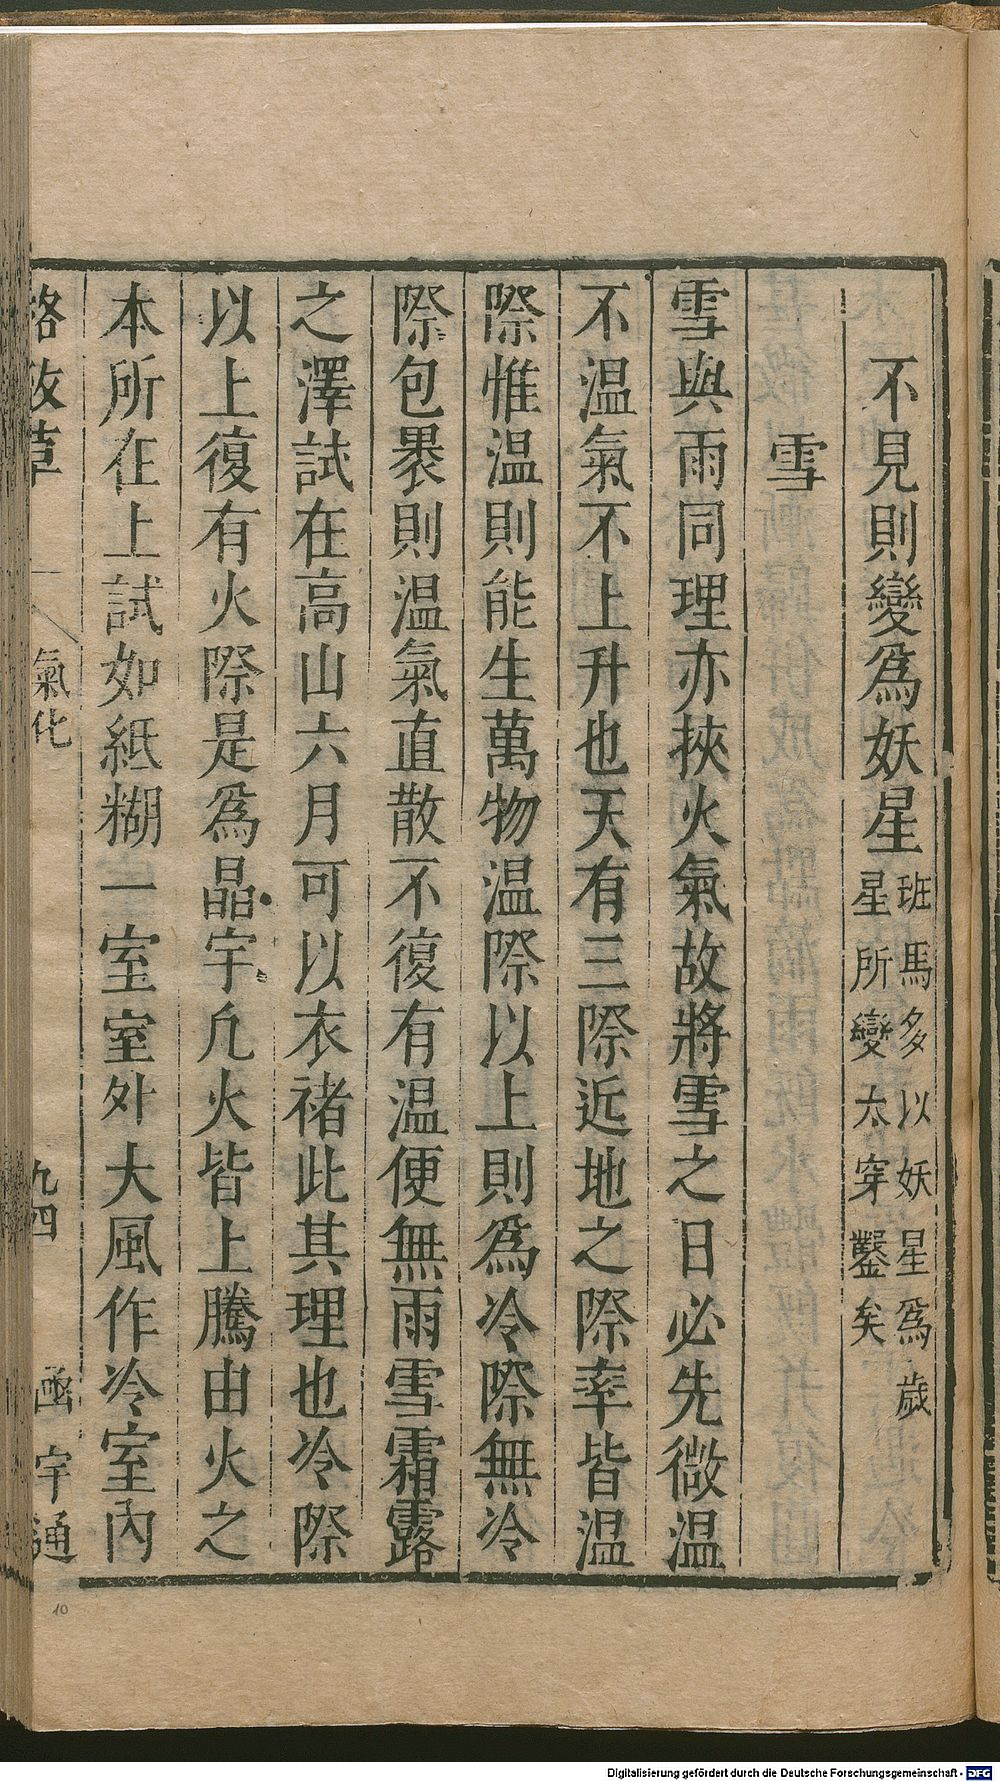 不見則變爲妖星班馬多以妖星爲歲
星所變太穿鑿矣
雪
雪與雨同理亦挾火氣故將雪之日必先微温
不温氣不上升也天有三際近地之際率皆温
際惟温則能生萬物温際以上則爲冷際無冷
際包褁則温氣直散不復有温便無雨雪霜露
之澤試在高山六月可以衣褚此其理也冷際
以上復有火際是爲晶宇凢火皆上騰由火之
本所在上試如紙糊一室室外大風作冷室內
格致草
氣化
九四
函宇通
10
Digitalisierung gefördert durch die Deutsche Forschungsgemeinschaft - DFG